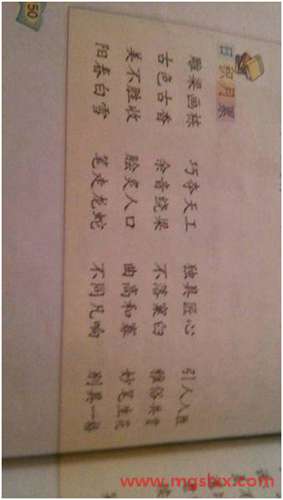 日积月累
雕梁画栋 巧夺天工 独具匠心 引人入胜
古色古香 余音绕梁 不落窠臼 雅俗共赏
美不胜收 脍炙人口 曲高和寡 妙笔生花
阳春白雪 笔走龙蛇 不同凡响 别具一格
150